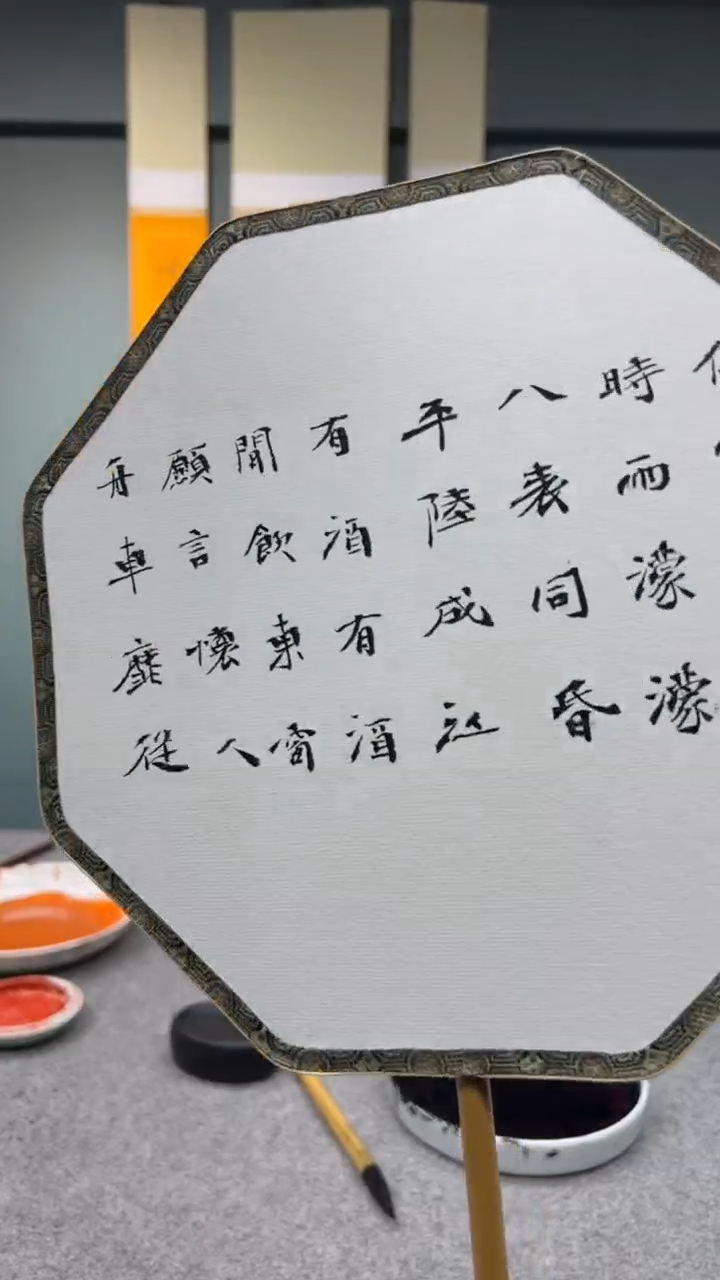 時而濛濛
八表同昏
平陸成江
有酒有酒
閒飲東窗
願言懷人
舟車靡從